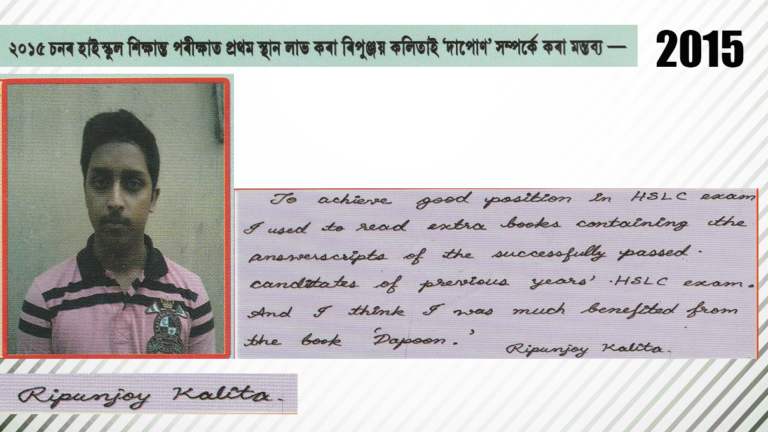 ২০১৫ চনৰ হাইস্কুল শিক্ষান্ত পৰীক্ষাত প্ৰথম স্থান লাভ কৰা ৰিপুঞ্জয় কলিতাই 'দাপোণ' সম্পৰ্কে কৰা মন্তব্য —
2015
To achieve good position in HSLC exam
I used to read extra books containing the
answerscripts of the successfully passed.
canditates of previous years' .HSLC exam.
And I think I was much benefited from
the book 'Dapoon.'
Ripunjoy Kalita.
Ripunjoy Kalita.